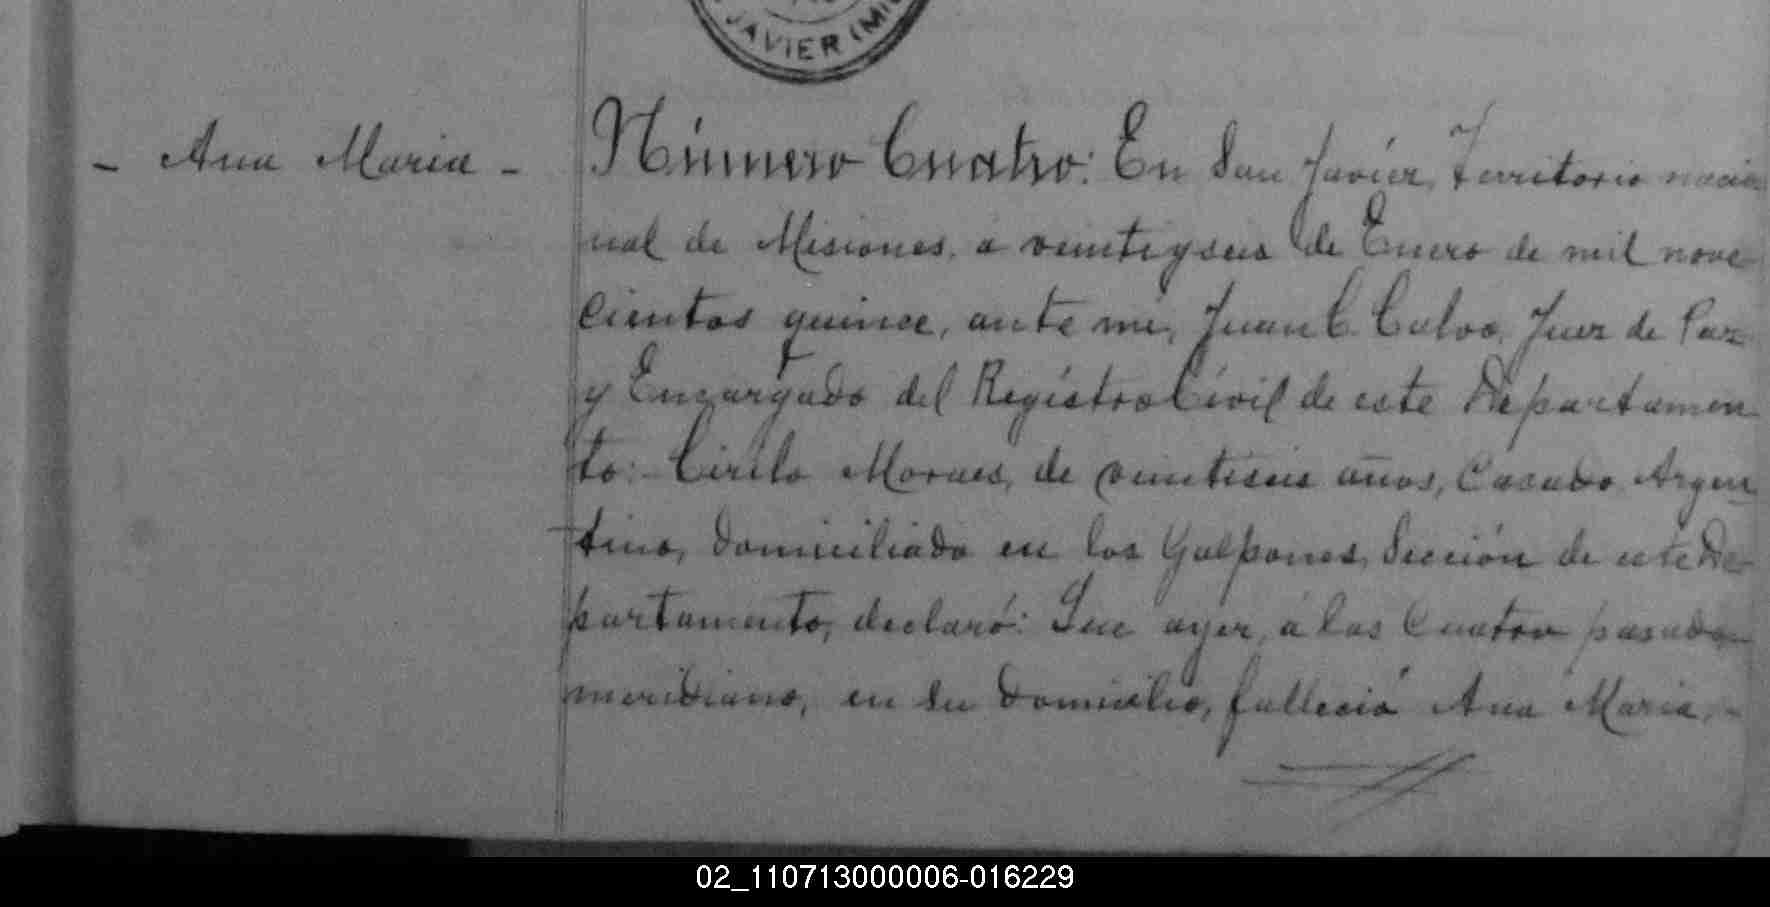 JAVIER (MI
- Ana Maria -
Número Cuatro: En San Javier, Territorio nacio
nal de Misiones, a veintiyseis de Enero de mil nove
cientos quince, ante mi, Juan C. Calvo, Juez de Paz
y Encargado del Registro Civil de este Departamen
to:- Cirilo Moraes, de veintiseis años, Casado, Argen
tino, domiciliado en los Galpones, Sección de este De
partamento, declaró: Que ayer, a las Cuatro pasado
meridiano, en su domicilio, falleció Ana Maria, -
02_110713000006-016229